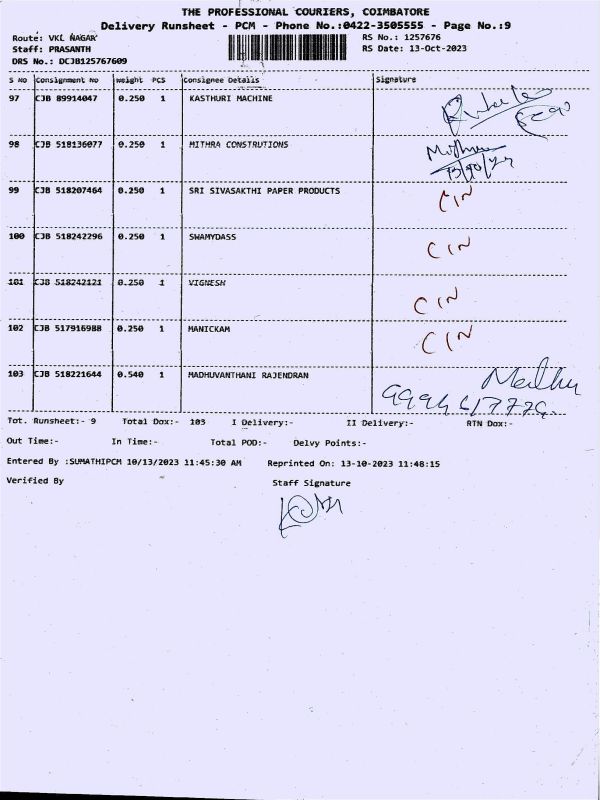 THE PROFESSIONAL COURIERS, COIMBATORE
Delivery Runsheet - PCM - Phone No.:0422-3505555 - Page No.:9
Route: VKL NAGAR RS No.: 1257676
Staff: PRASANTH RS Date: 13-Oct-2023
DRS No.: DCJB125767609
S NO Consignment no weight PCS Consignee Details Signature
97 CJB 89914047 0.250 1 KASTHURI MACHINE
98 CJB 518136077 0.250 1 MITHRA CONSTRUTIONS
99 CJB 518207464 0.250 1 SRI SIVASAKTHI PAPER PRODUCTS CIN
100 CJB 518242296 0.250 1 SWAMYDASS CIN
101 CJB 518242121 0.250 1 VIGNESH CIN
102 CJB 517916988 0.250 1 MANICKAM CIN
103 CJB 518221644 0.540 1 MADHUVANTHANI RAJENDRAN Madhu
Tot. Runsheet:- 9 Total Dox:- 103 I Delivery:- II Delivery:- RTN Dox:-
Out Time:- In Time:- Total POD:- Delvy Points:-
Entered By :SUMATHIPCM 10/13/2023 11:45:30 AM Reprinted On: 13-10-2023 11:48:15
Verified By Staff Signature